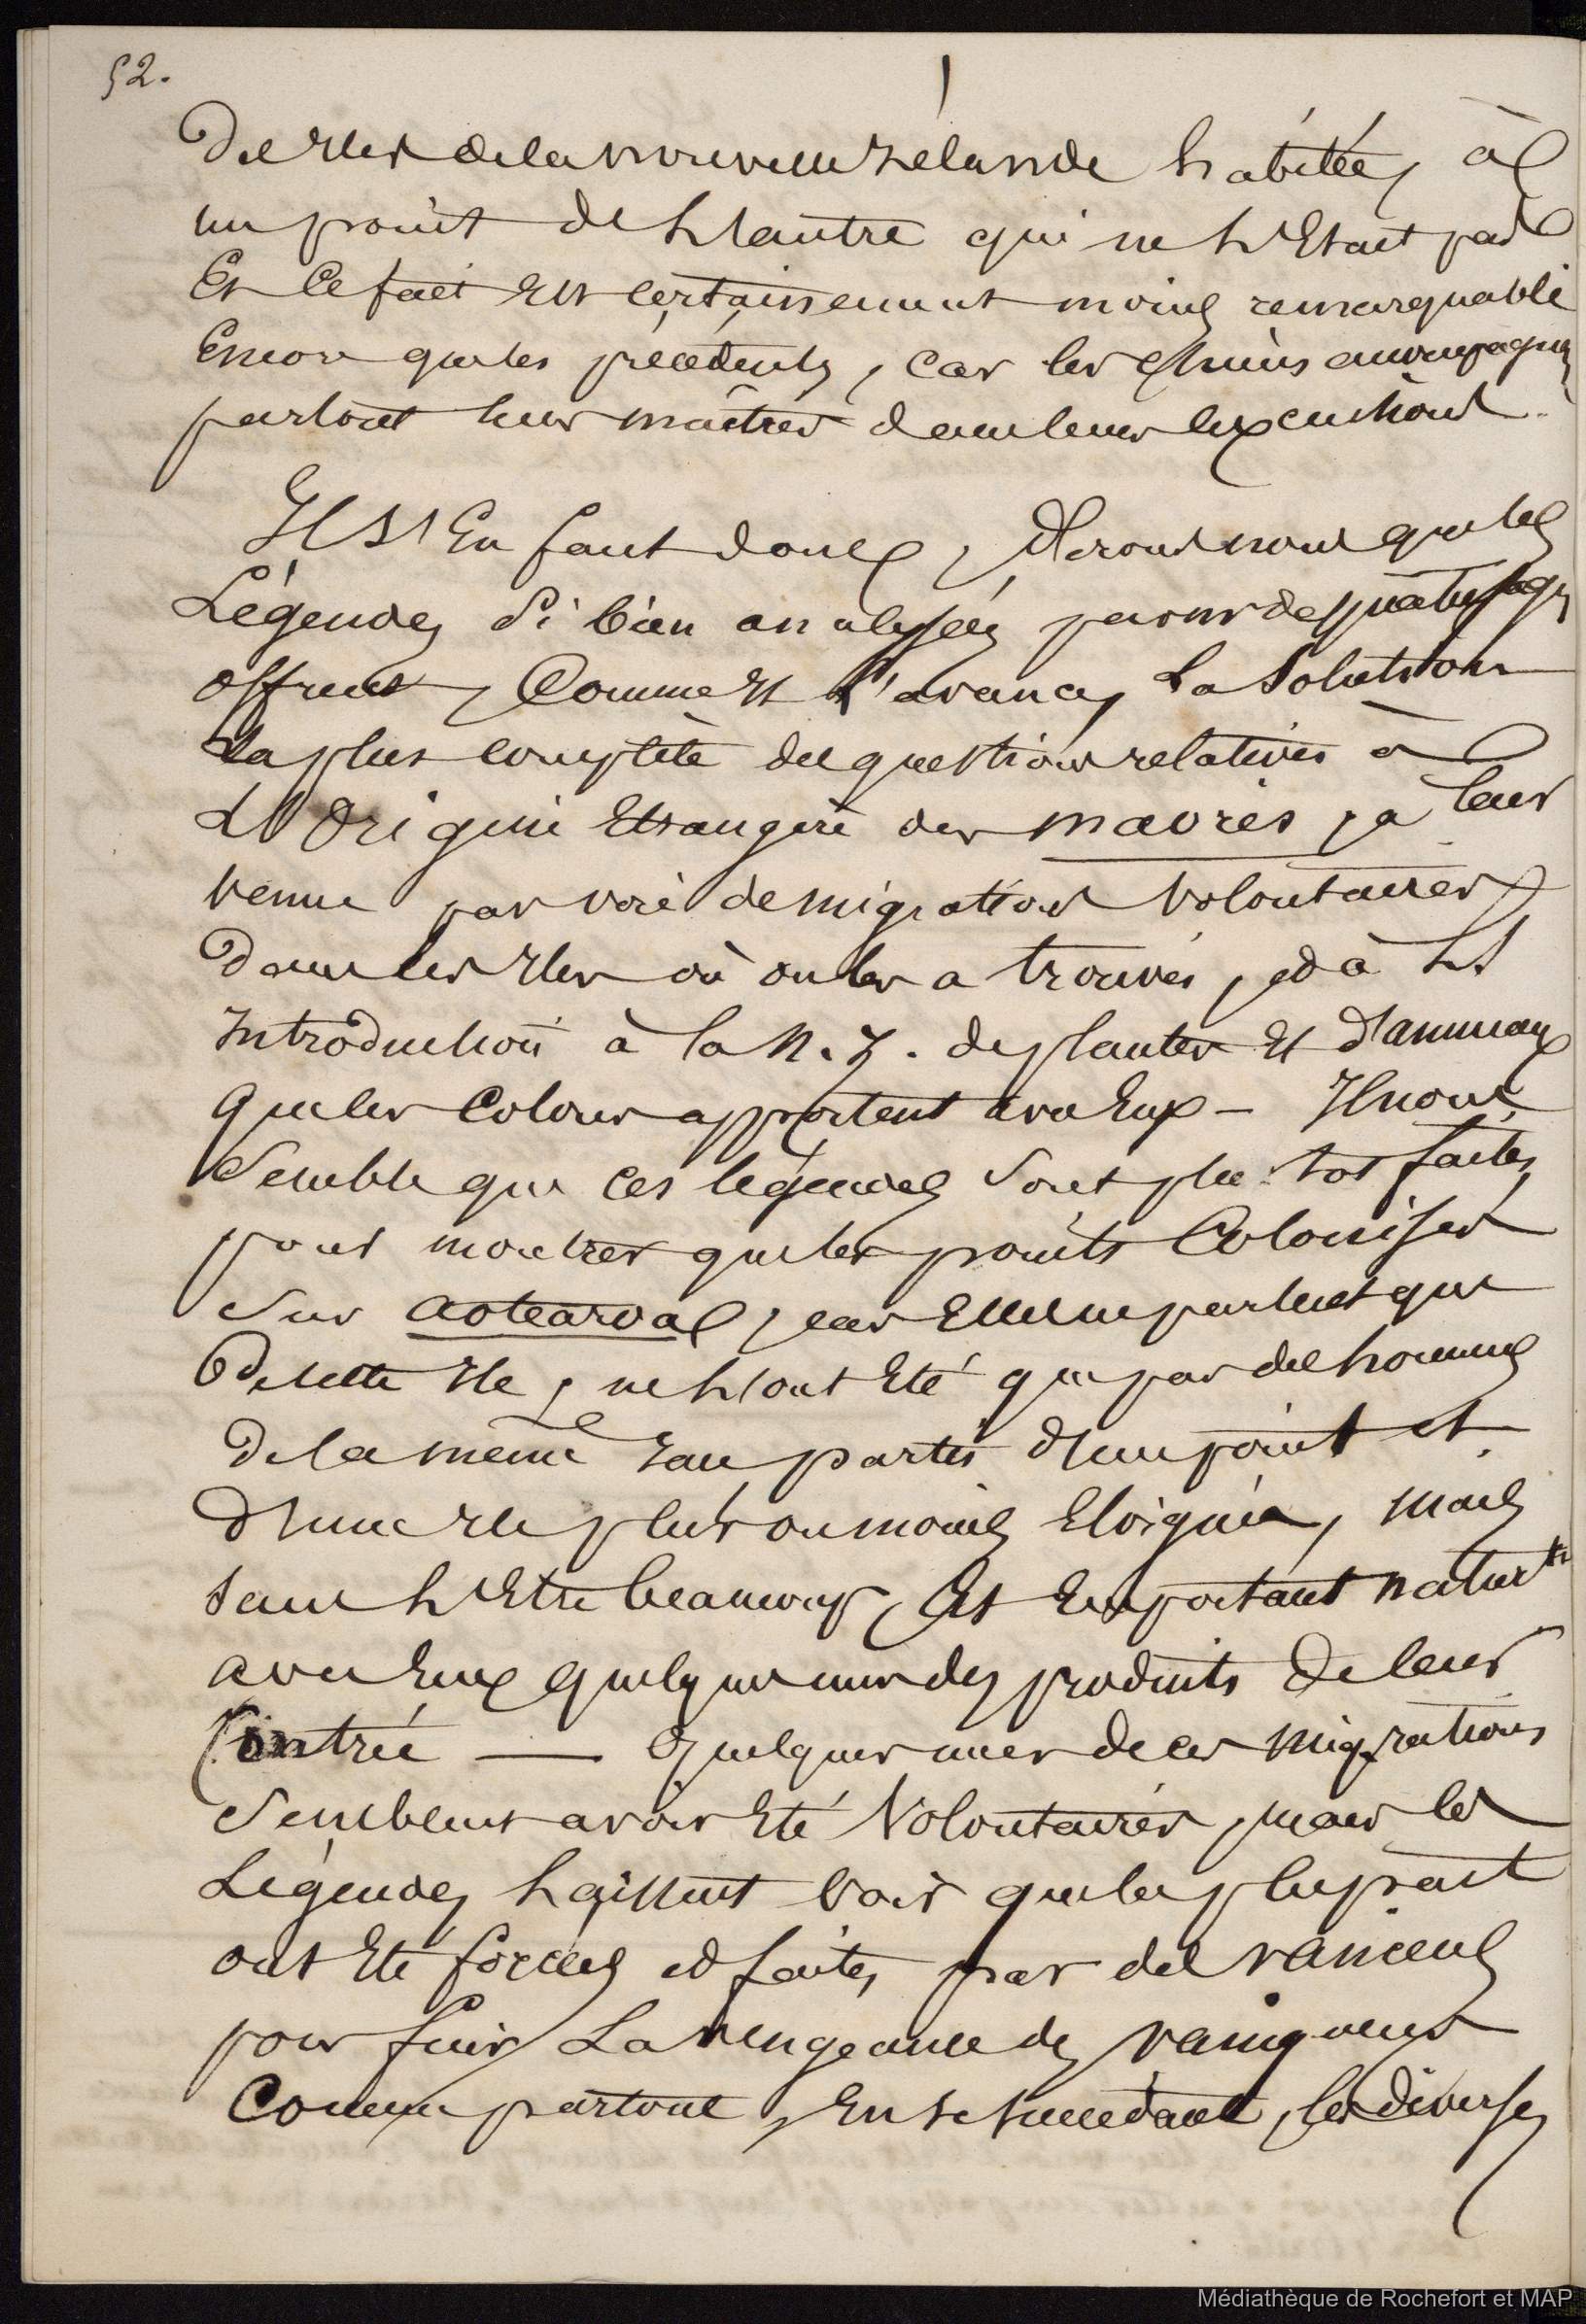 52.
des Iles de la nouvelle Zélande habitée, à
un point de l'autre qui ne l'Etait pas
Et ce fait Est certainement moins remarquable
Encore que les précédents, car les chiens accompagnent
partout leurs maitres dans leurs excursions.
Il s'En faut donc, dirons nous que les
Légendes si bien analysées par mr de quatrefages
offrent, comme il l'avance, La Solution
La plus complète des questions relatives à
L'Origine Etrangère des maoris, à leur
venue par voie de migrations volontaires
dans les Iles où on les a trouvés, et à l'
Introduction à la N. Z. de plantes Et d'animaux
que les Colons apportent avec Eux — Il nous
Semble que ces légendes sont plutot faites
pour montrer que les points Colonisés
sur aotearoa, car Elles ne parlent que
de cette Ile, ne l'ont Eté que par des hommes
de la même race partis d'un point et
d'une Ile plus ou moins Eloignée, mais
sans l'Etre beaucoup, Et Emportant natur.t
avec Eux quelques uns des produits de leur
Contrée — quelques unes de ces migrations
Semblent avoir Eté Volontaires, mais les
Légendes laissent voir que la plupart
ont Eté forcées et faites par des vaincus
pour fuir La vengeance des vainqueurs
Comme partout, En se succédant, les diverses
Médiathèque de Rochefort et MAP